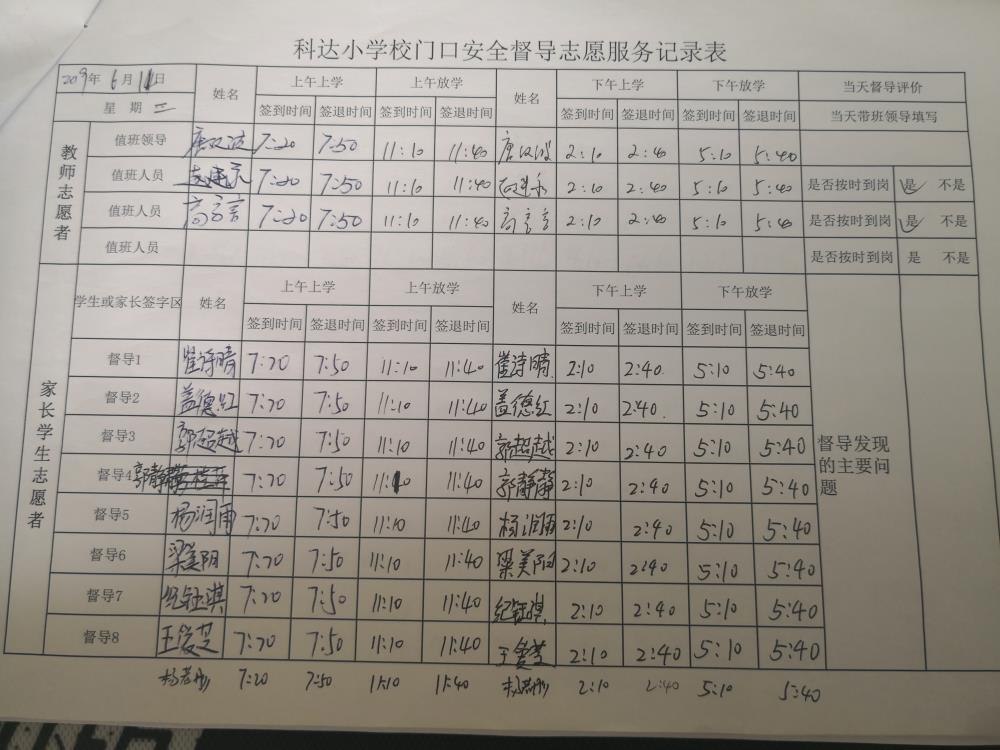 科达小学校门口安全督导志愿服务记录表
2019年 6月 11日 姓名 上午上学 上午放学 姓名 下午上学 下午放学 当天督导评价
星 期 二 签到时间 签退时间 签到时间 签退时间 签到时间 签退时间 签到时间 签退时间 当天带班领导填写
教师志愿者
值班领导 7:20 7:50 11:10 11:40 2:10 2:40 5:10 5:40
值班人员 7:20 7:50 11:10 11:40 2:10 2:40 5:10 5:40 是否按时到岗 是 不是
值班人员 高言言 7:20 7:50 11:10 11:40 高言言 2:10 2:40 5:10 5:40 是否按时到岗 是 不是
值班人员 是否按时到岗 是 不是
家长学生志愿者
学生或家长签字区 姓名 上午上学 上午放学 姓名 下午上学 下午放学
签到时间 签退时间 签到时间 签退时间 签到时间 签退时间 签到时间 签退时间
督导1 崔诗晴 7:20 7:50 11:10 11:40 崔诗晴 2:10 2:40 5:10 5:40
督导2 盖德红 7:20 7:50 11:10 11:40 盖德红 2:10 2:40 5:10 5:40
督导3 郭超越 7:20 7:50 11:10 11:40 郭超越 2:10 2:40 5:10 5:40
督导发现的主要问题
督导4 郭静静 7:20 7:50 11:10 11:40 郭静静 2:10 2:40 5:10 5:40
督导5 杨润雨 7:20 7:50 11:10 11:40 杨润雨 2:10 2:40 5:10 5:40
督导6 梁美阳 7:20 7:50 11:10 11:40 梁美阳 2:10 2:40 5:10 5:40
督导7 纪钰淇 7:20 7:50 11:10 11:40 纪钰淇 2:10 2:40 5:10 5:40
督导8 7:20 7:50 11:10 11:40 2:10 2:40 5:10 5:40
7:20 7:50 11:10 11:40 2:10 2:40 5:10 5:40